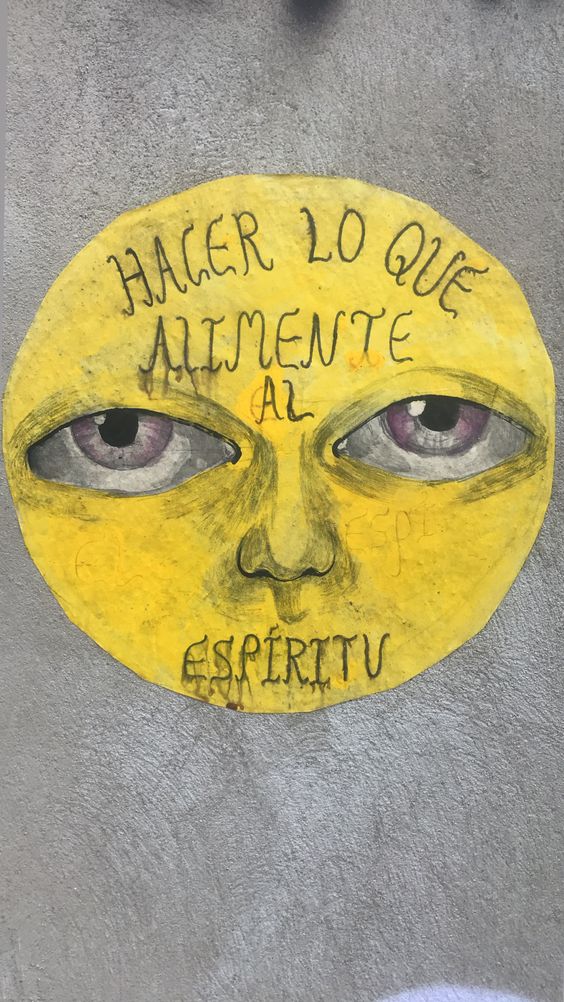 HACER LO QUE
ALIMENTE
AL
EL ESPÍ
ESPÍRITU